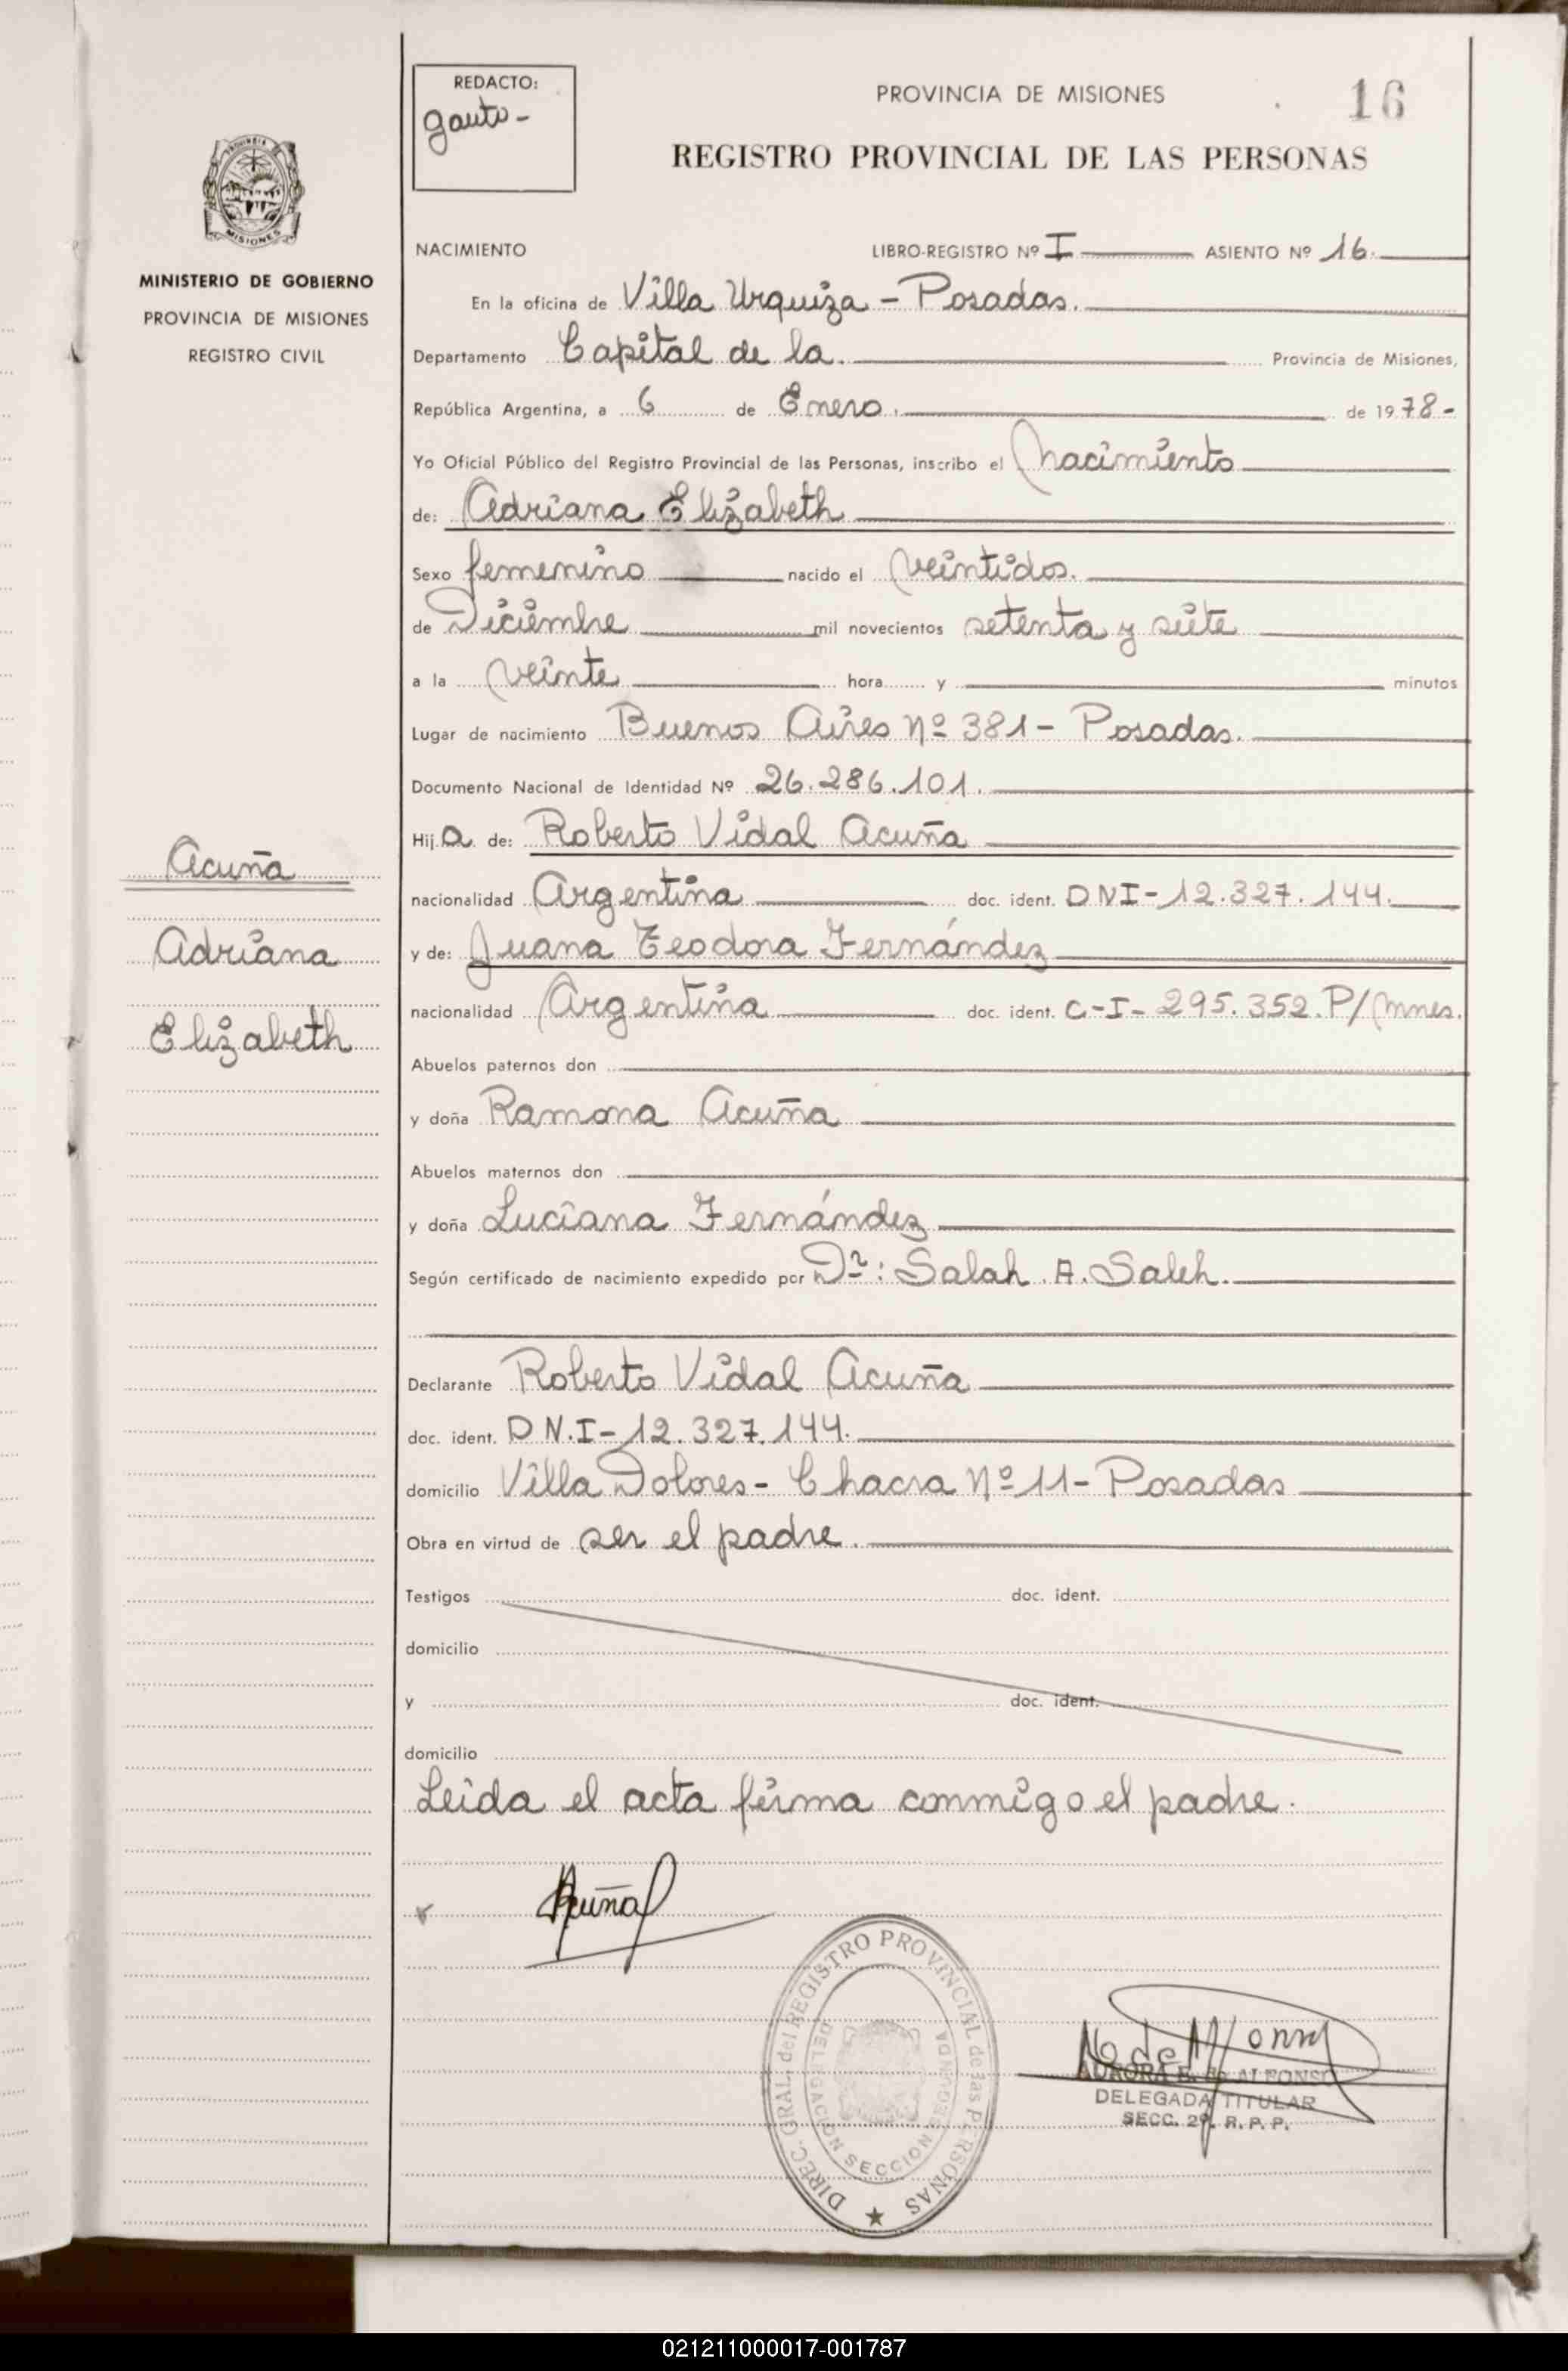 REDACTO:
gauto-
PROVINCIA DE MISIONES
16
REGISTRO PROVINCIAL DE LAS PERSONAS
MISIONES
MINISTERIO DE GOBIERNO
PROVINCIA DE MISIONES
REGISTRO CIVIL
NACIMIENTO LIBRO-REGISTRO Nº I ASIENTO Nº 16.
En la oficina de Villa Urquiza - Posadas.
Departamento Capital de la. Provincia de Misiones,
República Argentina, a 6 de Enero. de 1978-
Yo Oficial Público del Registro Provincial de las Personas, inscribo el Nacimiento
de: Adriana Elizabeth
Sexo femenino nacido el veintidos.
de Diciembre mil novecientos setenta y siete
a la veinte hora y minutos
Lugar de nacimiento Buenos Aires Nº 381 - Posadas.
Documento Nacional de Identidad Nº 26.286.101.
Hija de: Roberto Vidal Acuña
nacionalidad Argentina doc. ident. DNI-12.327.144.
y de: Juana Teodora Fernández
nacionalidad Argentina doc. ident. C-I-295.352.P/Mnes.
Abuelos paternos don
y doña Ramona Acuña
Abuelos maternos don
y doña Luciana Fernández
Según certificado de nacimiento expedido por Dr: Salah.A.Saleh.
Declarante Roberto Vidal Acuña
doc. ident. DN.I-12.327.144.
domicilio Villa Dolores- Chacra Nº 11- Posadas
Obra en virtud de ser el padre.
Testigos doc. ident.
domicilio
y doc. ident.
domicilio
Leida el acta firma conmigo el padre.
Acuña
Adriana
Elizabeth
Acuña
DIREC. GRAL. del REGISTRO PROVINCIAL de las PERSONAS
DELEGACION SECCION SEGUNDA
AURORA E. de ALFONSO
DELEGADA TITULAR
SECC. 2ª. R. P. P.
021211000017-001787